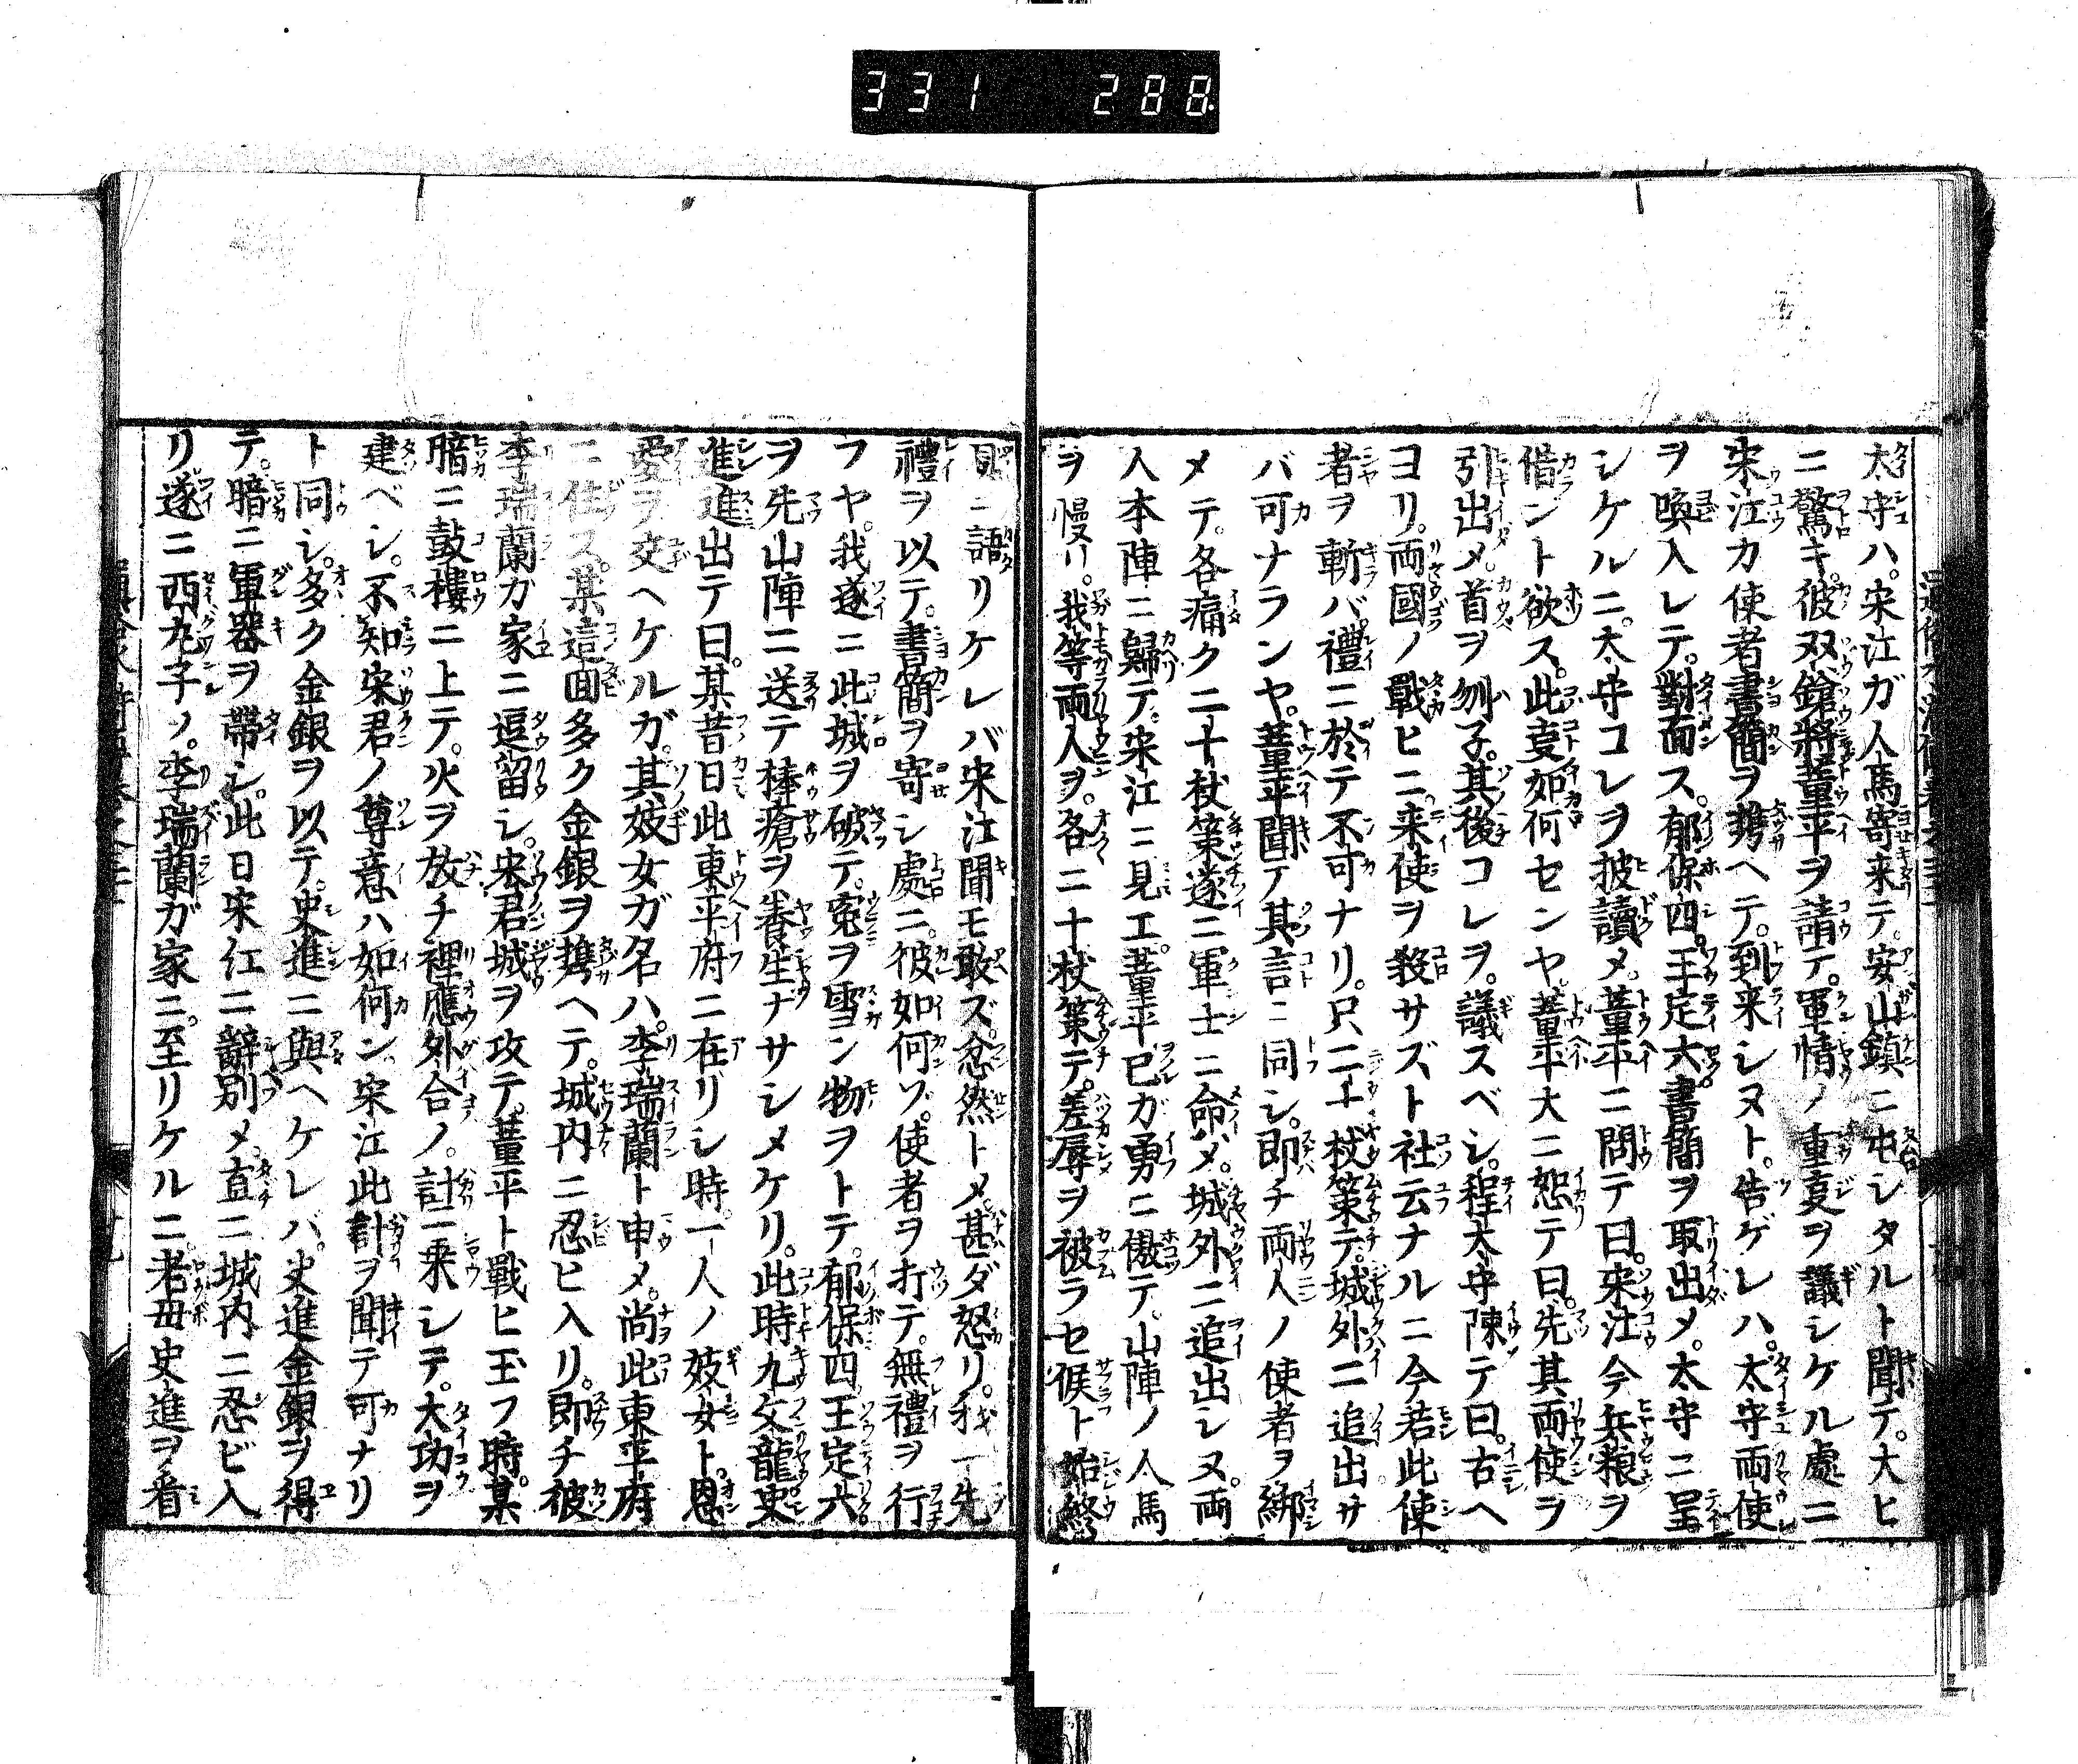 331 288
太守ハ。宋江ガ人馬寄来テ。安山鎮ニ屯シタルト聞テ。大ヒ
ニ驚キ。彼双鎗將董平ヲ請テ。軍情ノ重叓ヲ議シケル處ニ
宋江カ使者書簡ヲ携ヘテ。到来シヌト。告ゲレハ。太守両使
ヲ喚入レテ。對面ス。郁保四。王定六。書簡ヲ取出メ。太守ニ呈
シケルニ。太守コレヲ披讀メ。董平ニ問テ曰。宋江今兵粮ヲ
借ント欲ス。此叓如何センヤ。董平大ニ怒テ曰。先其両使ヲ
引出メ。首ヲ刎子。其後コレヲ。議スベシ。程太守陳テ曰。古ヘ
ヨリ。両國ノ戰ヒニ。来使ヲ殺サズト社云ナルニ今若此使
者ヲ斬バ。禮ニ於テ不可ナリ。只二十杖策テ。城外ニ追出サ
バ可ナランヤ。董平聞テ其言ニ同シ。即チ両人ノ使者ヲ綁
メテ。各痛ク二十杖策遂ニ軍士ニ命メ。城外ニ追出シヌ。両
人本陣ニ歸テ。宋江ニ見エ。董平已ガ勇ニ傲テ。山陣ノ人馬
ヲ慢リ。我等両人ヲ。各二十杖策テ。羞辱ヲ被ラセ候ト始終
具ニ語リケレバ宋江聞モ敢ズ。忿然トメ甚ダ怒リ。我一先
禮ヲ以テ。書簡ヲ寄シ處ニ。彼如何ソ。使者ヲ打テ。無禮ヲ行
フヤ。我遂ニ此城ヲ破テ。寃ヲ雪ン物ヲトテ。郁保四王定六
ヲ先山陣ニ送テ棒瘡ヲ養生ナサシメケリ。此時九文龍史
進進出テ曰。某昔日此東平府ニ在リシ時一人ノ妓女ト。恩
愛ヲ交ヘケルガ。其妓女ガ名ハ。李瑞蘭ト申メ。尚此東平府
ニ住ス。某這回多ク金銀ヲ携ヘテ。城内ニ忍ヒ入リ。即チ彼
李瑞蘭ガ家ニ逗留シ。宋君城ヲ攻テ。董平ト戰ヒ玉フ時。某
暗ニ鼓樓ニ上テ。火ヲ放チ裡應外合ノ。計ニ乗シテ。大功ヲ
建ベシ。不知宋君ノ尊意ハ如何ン宋江此計ヲ聞テ可ナリ
ト同シ。多ク金銀ヲ以テ。史進ニ與ヘケレバ。史進金銀ヲ得
テ。暗ニ軍器ヲ帶シ。此日宋江ニ辭別メ。直ニ城内ニ忍ビ入
リ遂ニ西瓦子ノ。李瑞蘭ガ家ニ。至リケルニ老母史進ヲ看